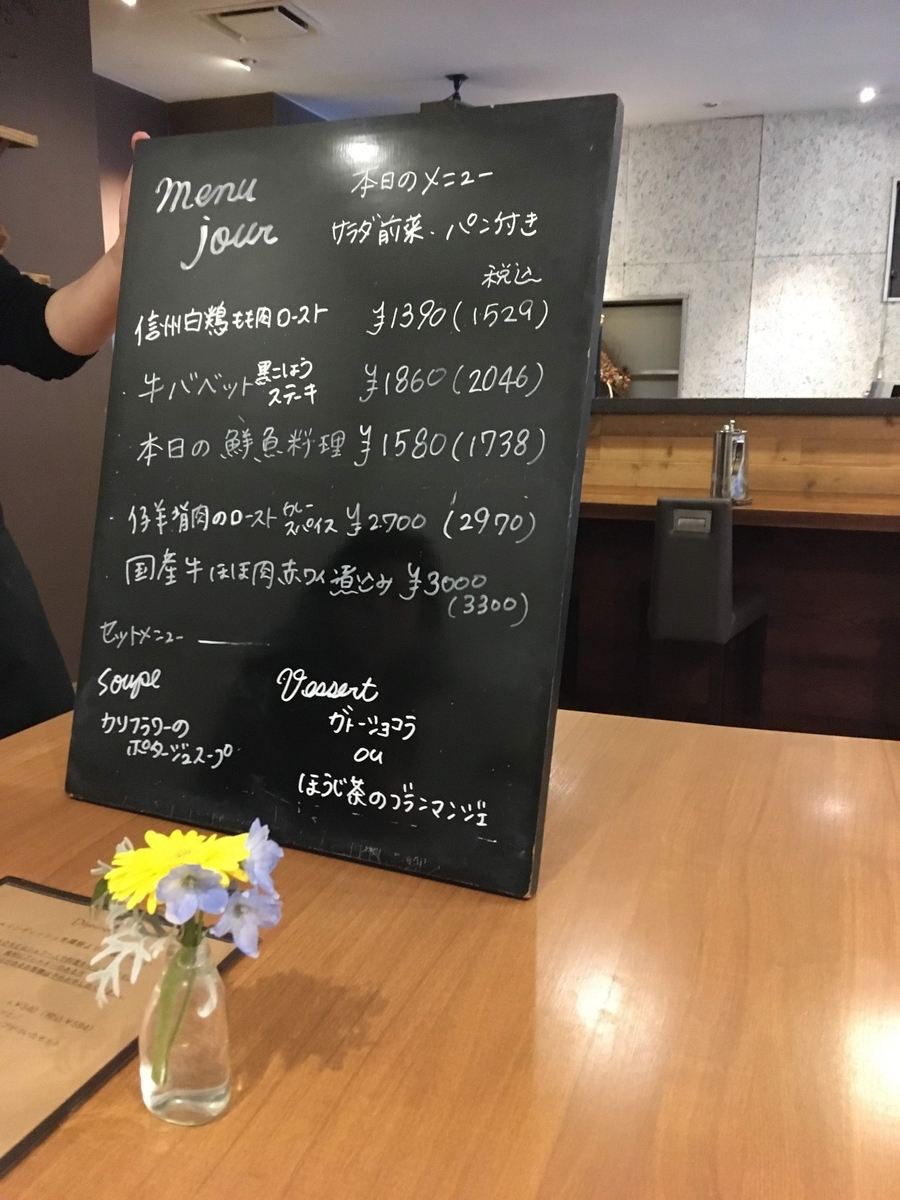 menu
jour
本日のメニュー
サラダ前菜・パン付き
税込
信州白鶏もも肉ロースト ¥1390(1529)
・牛バベット黒こしょうステーキ ¥1860(2046)
本日の鮮魚料理 ¥1580(1738)
・仔羊背肉のローストカレースパイス ¥2700 (2970)
国産牛ほほ肉赤ワイン煮込み ¥3000
(3300)
セットメニュー
Soupe
カリフラワーの
ポタージュスープ
Dessert
ガトーショコラ
ou
ほうじ茶のブランマンジェ